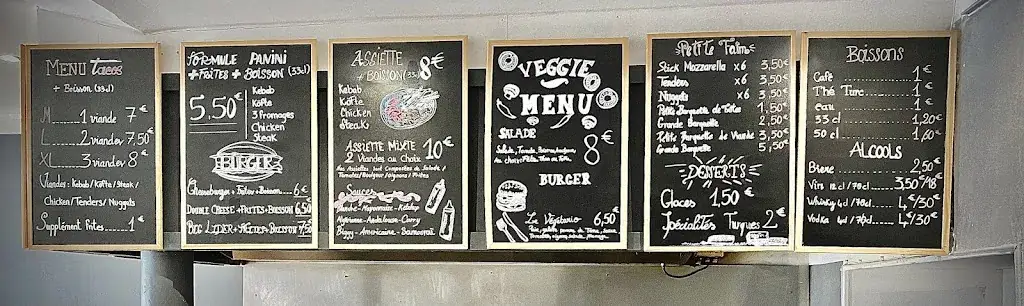 MENU tacos
+ Boisson (33cl)
M ... 1 viande 7€
L ... 2 viandes 7,50€
XL ... 3 viandes 8€
Viandes: Kebab/Köfte/Steak/
Chicken/Tenders/Nuggets
Supplément Frites ... 1€
FORMULE PANINI
+ FRITES + BOISSON (33cl)
5.50€
Kebab
Köfte
3 fromages
Chicken
Steak
BURGER
Cheeseburger + Frites + Boisson 6€
DOUBLE CHEESE + FRITES + BOISSON 6,50
BIG LIDER + FRITES + BOISSON 7,50
ASSIETTE
+ BOISSON (33cl) 8€
Kebab
Köfte
Chicken
Steak
ASSIETTE MIXTE 10€
2 Viandes au Choix
Les Assiettes sont Composées de Salade/
Tomates/Boulgour/Oignons/Frites
Sauces
Blanche - Mayonnaise - Ketchup
Algérienne - Andalouse - Curry
Biggy - Américaine - Samouraï
VEGGIE
MENU
SALADE
8€
BURGER
Le Végétario 6,50
Petite Faim
Stick Mozzarella x6 3,50€
Tenders x6 3,50€
Nuggets x6 3,50€
Petite Barquette de Frites 1,50€
Grande Barquette 2,50€
Petite Barquette de Viande 3,50€
Grande Barquette 5,50€
DESSERTS
Glaces 1,50€
Spécialités Turques 2€
BOISSONS
Café ... 1€
Thé Turc ... 1€
eau ... 1€
33 cl ... 1,20€
50 cl ... 1,60€
ALCOOLS
Bière ... 2,50€
Vins 12cl/70cl ... 3,50/18€
Whisky 4cl/70cl ... 4€/30€
Vodka 4cl/70cl ... 4€/30€